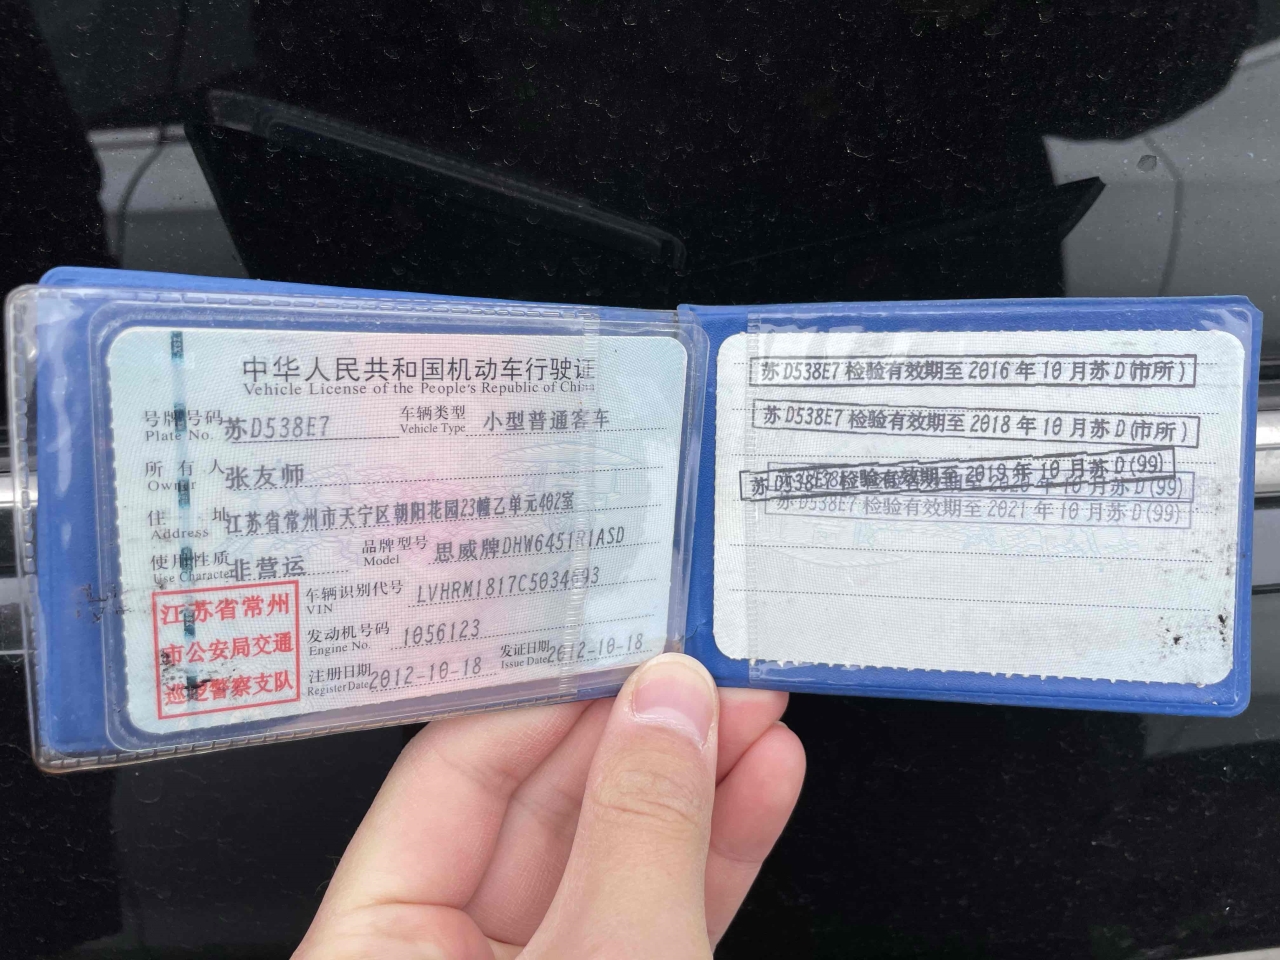 中华人民共和国机动车行驶证
Vehicle License of the People's Republic of China
号牌号码 苏D538E7 车辆类型 小型普通客车
Plate No. Vehicle Type
所有人 张友师
Owner
住址 江苏省常州市天宁区朝阳花园23幢乙单元402室
Address
使用性质 非营运 品牌型号 思威牌DHW6451R1ASD
Use Character Model
车辆识别代号
VIN
发动机号码 1056123
Engine No.
注册日期 2012-10-18 发证日期 2012-10-18
Register Date Issue Date
江苏省常州
市公安局交通
巡逻警察支队
苏D538E7检验有效期至2016年10月苏D(市所)
苏D538E7检验有效期至2018年10月苏D(市所)
苏D538E7检验有效期至2019年10月苏D(99)
年10月苏D(99)
苏D538E7检验有效期至2021年10月苏D(99)